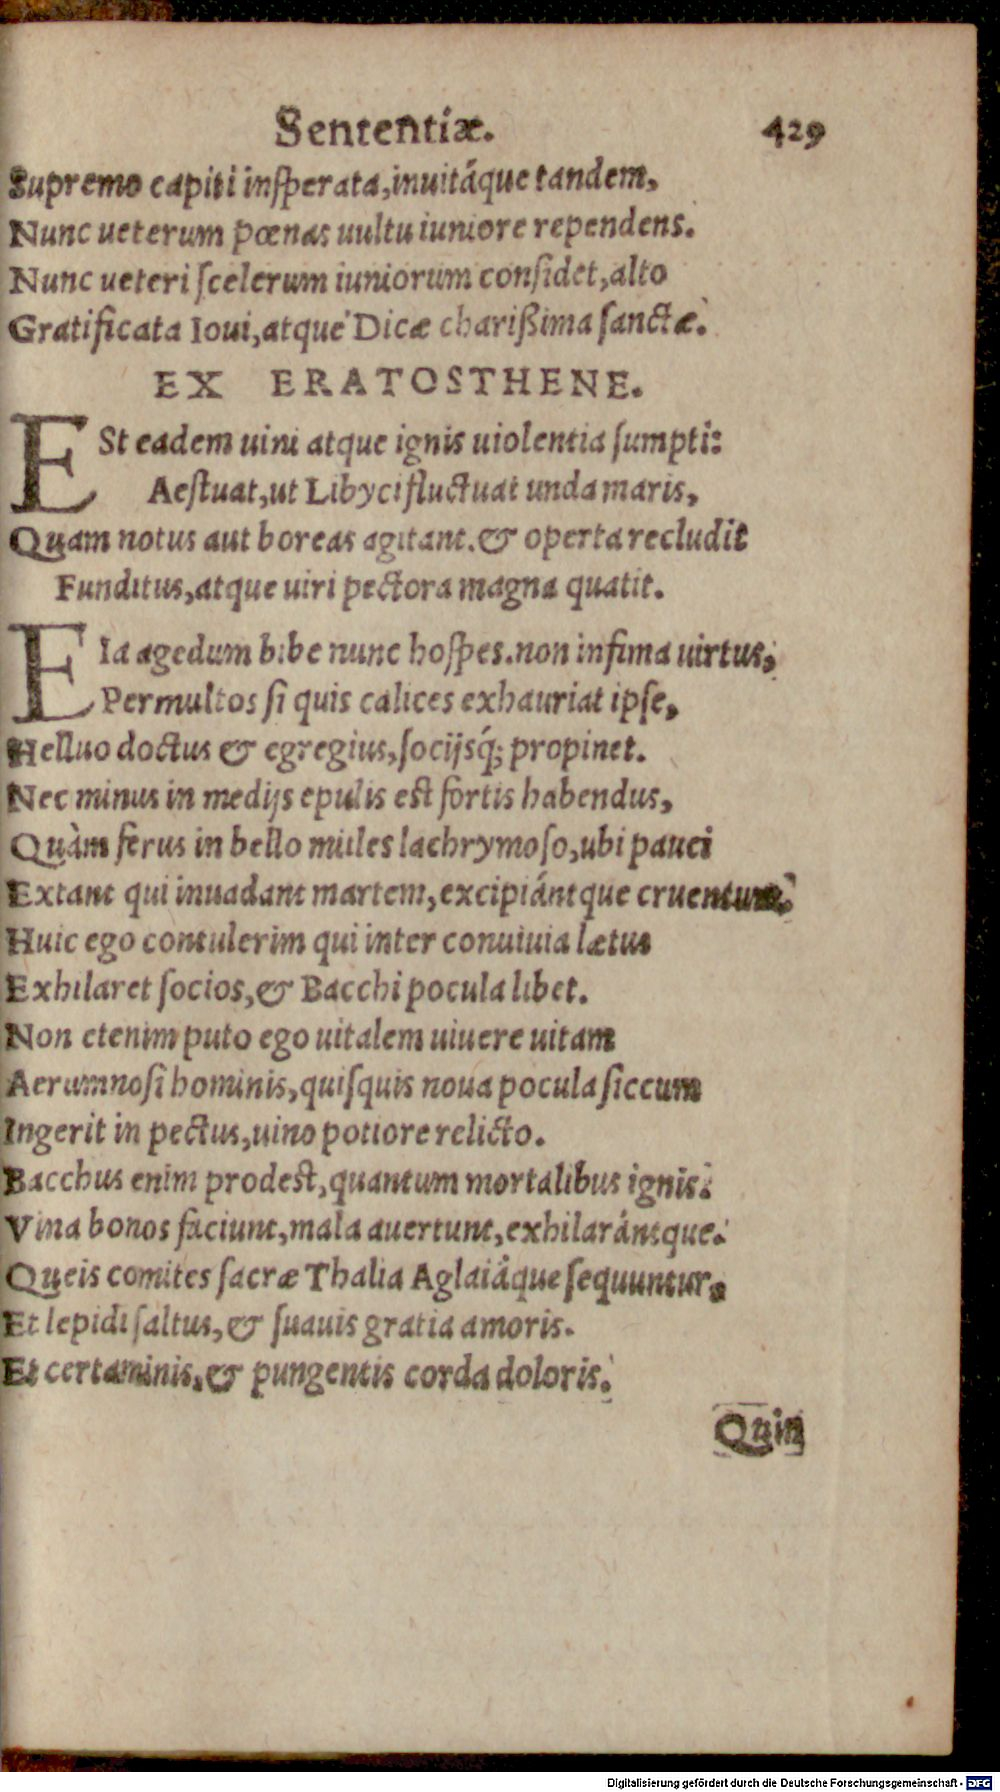 Sententiæ. 429
Supremo capiti insperata, inuitáque tandem,
Nunc ueterum pœnas uultu iuniore rependens.
Nunc ueteri scelerum iuniorum considet, alto
Gratificata Ioui, atque Dicæ charißima sanctæ.
EX ERATOSTHENE.
ESt eadem uini atque ignis uiolentia sumpti:
Aestuat, ut Libyci fluctuat unda maris,
Quam notus aut boreas agitant. & operta recludit
Funditus, atque uiri pectora magna quatit.
EIa agedum bibe nunc hospes. non infima uirtus,
Permultos si quis calices exhauriat ipse,
Helluo doctus & egregius, socijsq́; propinet.
Nec minus in medijs epulis est fortis habendus,
Quàm ferus in bello miles lachrymoso, ubi pauci
Extant qui inuadant martem, excipiántque cruentum.
Huic ego contulerim qui inter conuiuia lætus
Exhilaret socios, & Bacchi pocula libet.
Non etenim puto ego uitalem uiuere uitam
Aerumnosi hominis, quisquis noua pocula siccum
Ingerit in pectus, uino potiore relicto.
Bacchus enim prodest, quantum mortalibus ignis.
Vina bonos faciunt, mala auertunt, exhilarántque.
Queis comites sacræ Thalia Aglaiáque sequuntur,
Et lepidi saltus, & suauis gratia amoris.
Et certaminis, & pungentis corda doloris.
Quin
Digitalisierung gefördert durch die Deutsche Forschungsgemeinschaft - DFG